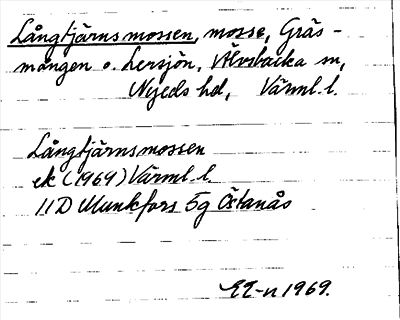 Långtjärnsmossen, mosse, Gräs-
mången o. Lersjön, Älvsbacka sn,
Nyeds hd, Värml. l.
Långtjärnsmossen
ek (1969) Värml. l.
11D Munkfors 5g Östanås
EE-n 1969.